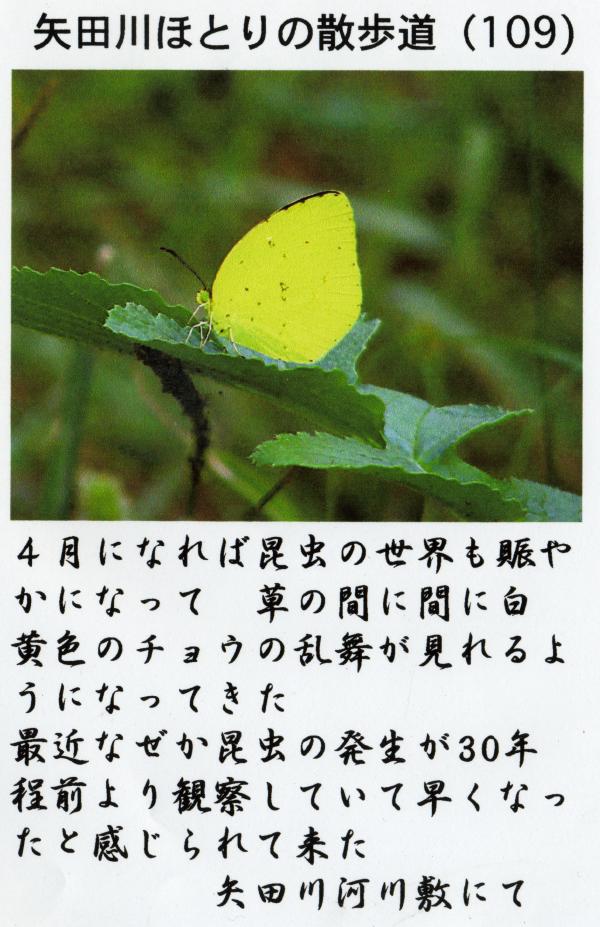 矢田川ほとりの散歩道 (109)
4月になれば昆虫の世界も賑や
かになって　草の間に間に白
黄色のチョウの乱舞が見れるよ
うになってきた
最近なぜか昆虫の発生が30年
程前より観察していて早くなっ
たと感じられて来た
矢田川河川敷にて